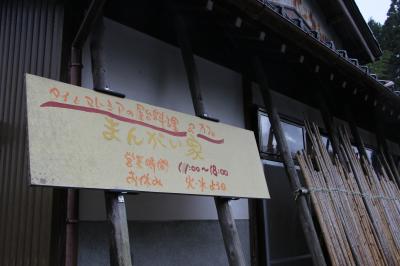 タイとマレーシアの屋台料理 & カフェ
まんがい家
営業時間 11:00~18:00
お休み 火・水よう日